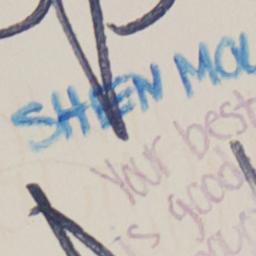 SHEEN MOU
Your best
is good